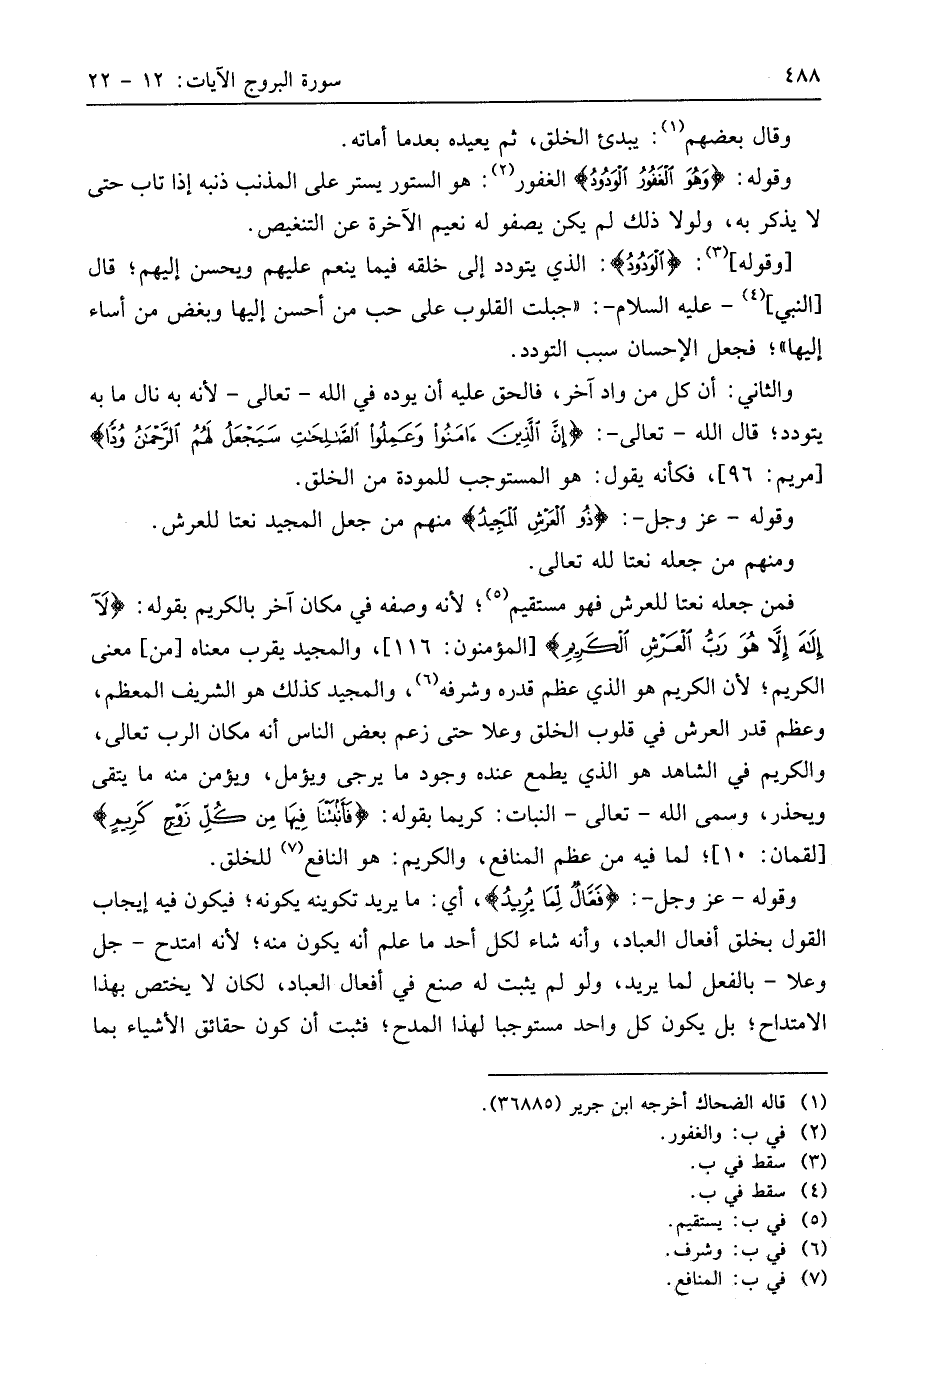 ٤٨٨
سورة البروج الآيات: ١٢ - ٢٢
وقال بعضهم(١): يبدئ الخلق، ثم يعيده بعدما أماته.
وقوله: ﴿وَهُوَ ٱلْغَفُورُ ٱلْوَدُودُ﴾ الغفور(٢): هو الستور يستر على المذنب ذنبه إذا تاب حتى
لا يذكر به، ولولا ذلك لم يكن يصفو له نعيم الآخرة عن التنغيص.
[وقوله](٣): ﴿ٱلْوَدُودُ﴾: الذي يتودد إلى خلقه فيما ينعم عليهم ويحسن إليهم؛ قال
[النبي](٤) - عليه السلام-: «جبلت القلوب على حب من أحسن إليها وبغض من أساء
إليها»؛ فجعل الإحسان سبب التودد.
والثاني: أن كل من واد آخر، فالحق عليه أن يوده في الله - تعالى - لأنه به نال ما به
يتودد؛ قال الله - تعالى-: ﴿إِنَّ ٱلَّذِينَ ءَامَنُوا۟ وَعَمِلُوا۟ ٱلصَّـٰلِحَـٰتِ سَيَجْعَلُ لَهُمُ ٱلرَّحْمَـٰنُ وُدًّا﴾
[مريم: ٩٦]، فكأنه يقول: هو المستوجب للمودة من الخلق.
وقوله - عز وجل-: ﴿ذُو ٱلْعَرْشِ ٱلْمَجِيدُ﴾ منهم من جعل المجيد نعتا للعرش.
ومنهم من جعله نعتا لله تعالى.
فمن جعله نعتا للعرش فهو مستقيم(٥)؛ لأنه وصفه في مكان آخر بالكريم بقوله: ﴿لَآ
إِلَـٰهَ إِلَّا هُوَ رَبُّ ٱلْعَرْشِ ٱلْكَرِيمِ﴾ [المؤمنون: ١١٦]، والمجيد يقرب معناه [من] معنى
الكريم؛ لأن الكريم هو الذي عظم قدره وشرفه(٦)، والمجيد كذلك هو الشريف المعظم،
وعظم قدر العرش في قلوب الخلق وعلا حتى زعم بعض الناس أنه مكان الرب تعالى،
والكريم في الشاهد هو الذي يطمع عنده وجود ما يرجى ويؤمل، ويؤمن منه ما يتقى
ويحذر، وسمى الله - تعالى - النبات: كريما بقوله: ﴿فَأَنۢبَتْنَا فِيهَا مِن كُلِّ زَوْجٍ كَرِيمٍ﴾
[لقمان: ١٠]؛ لما فيه من عظم المنافع، والكريم: هو النافع(٧) للخلق.
وقوله - عز وجل-: ﴿فَعَّالٌ لِّمَا يُرِيدُ﴾، أي: ما يريد تكوينه يكونه؛ فيكون فيه إيجاب
القول بخلق أفعال العباد، وأنه شاء لكل أحد ما علم أنه يكون منه؛ لأنه امتدح - جل
وعلا - بالفعل لما يريد، ولو لم يثبت له صنع في أفعال العباد، لكان لا يختص بهذا
الامتداح؛ بل يكون كل واحد مستوجبا لهذا المدح؛ فثبت أن كون حقائق الأشياء بما
(١) قاله الضحاك أخرجه ابن جرير (٣٦٨٨٥).
(٢) في ب: والغفور.
(٣) سقط في ب.
(٤) سقط في ب.
(٥) في ب: يستقيم.
(٦) في ب: وشرف.
(٧) في ب: المنافع.